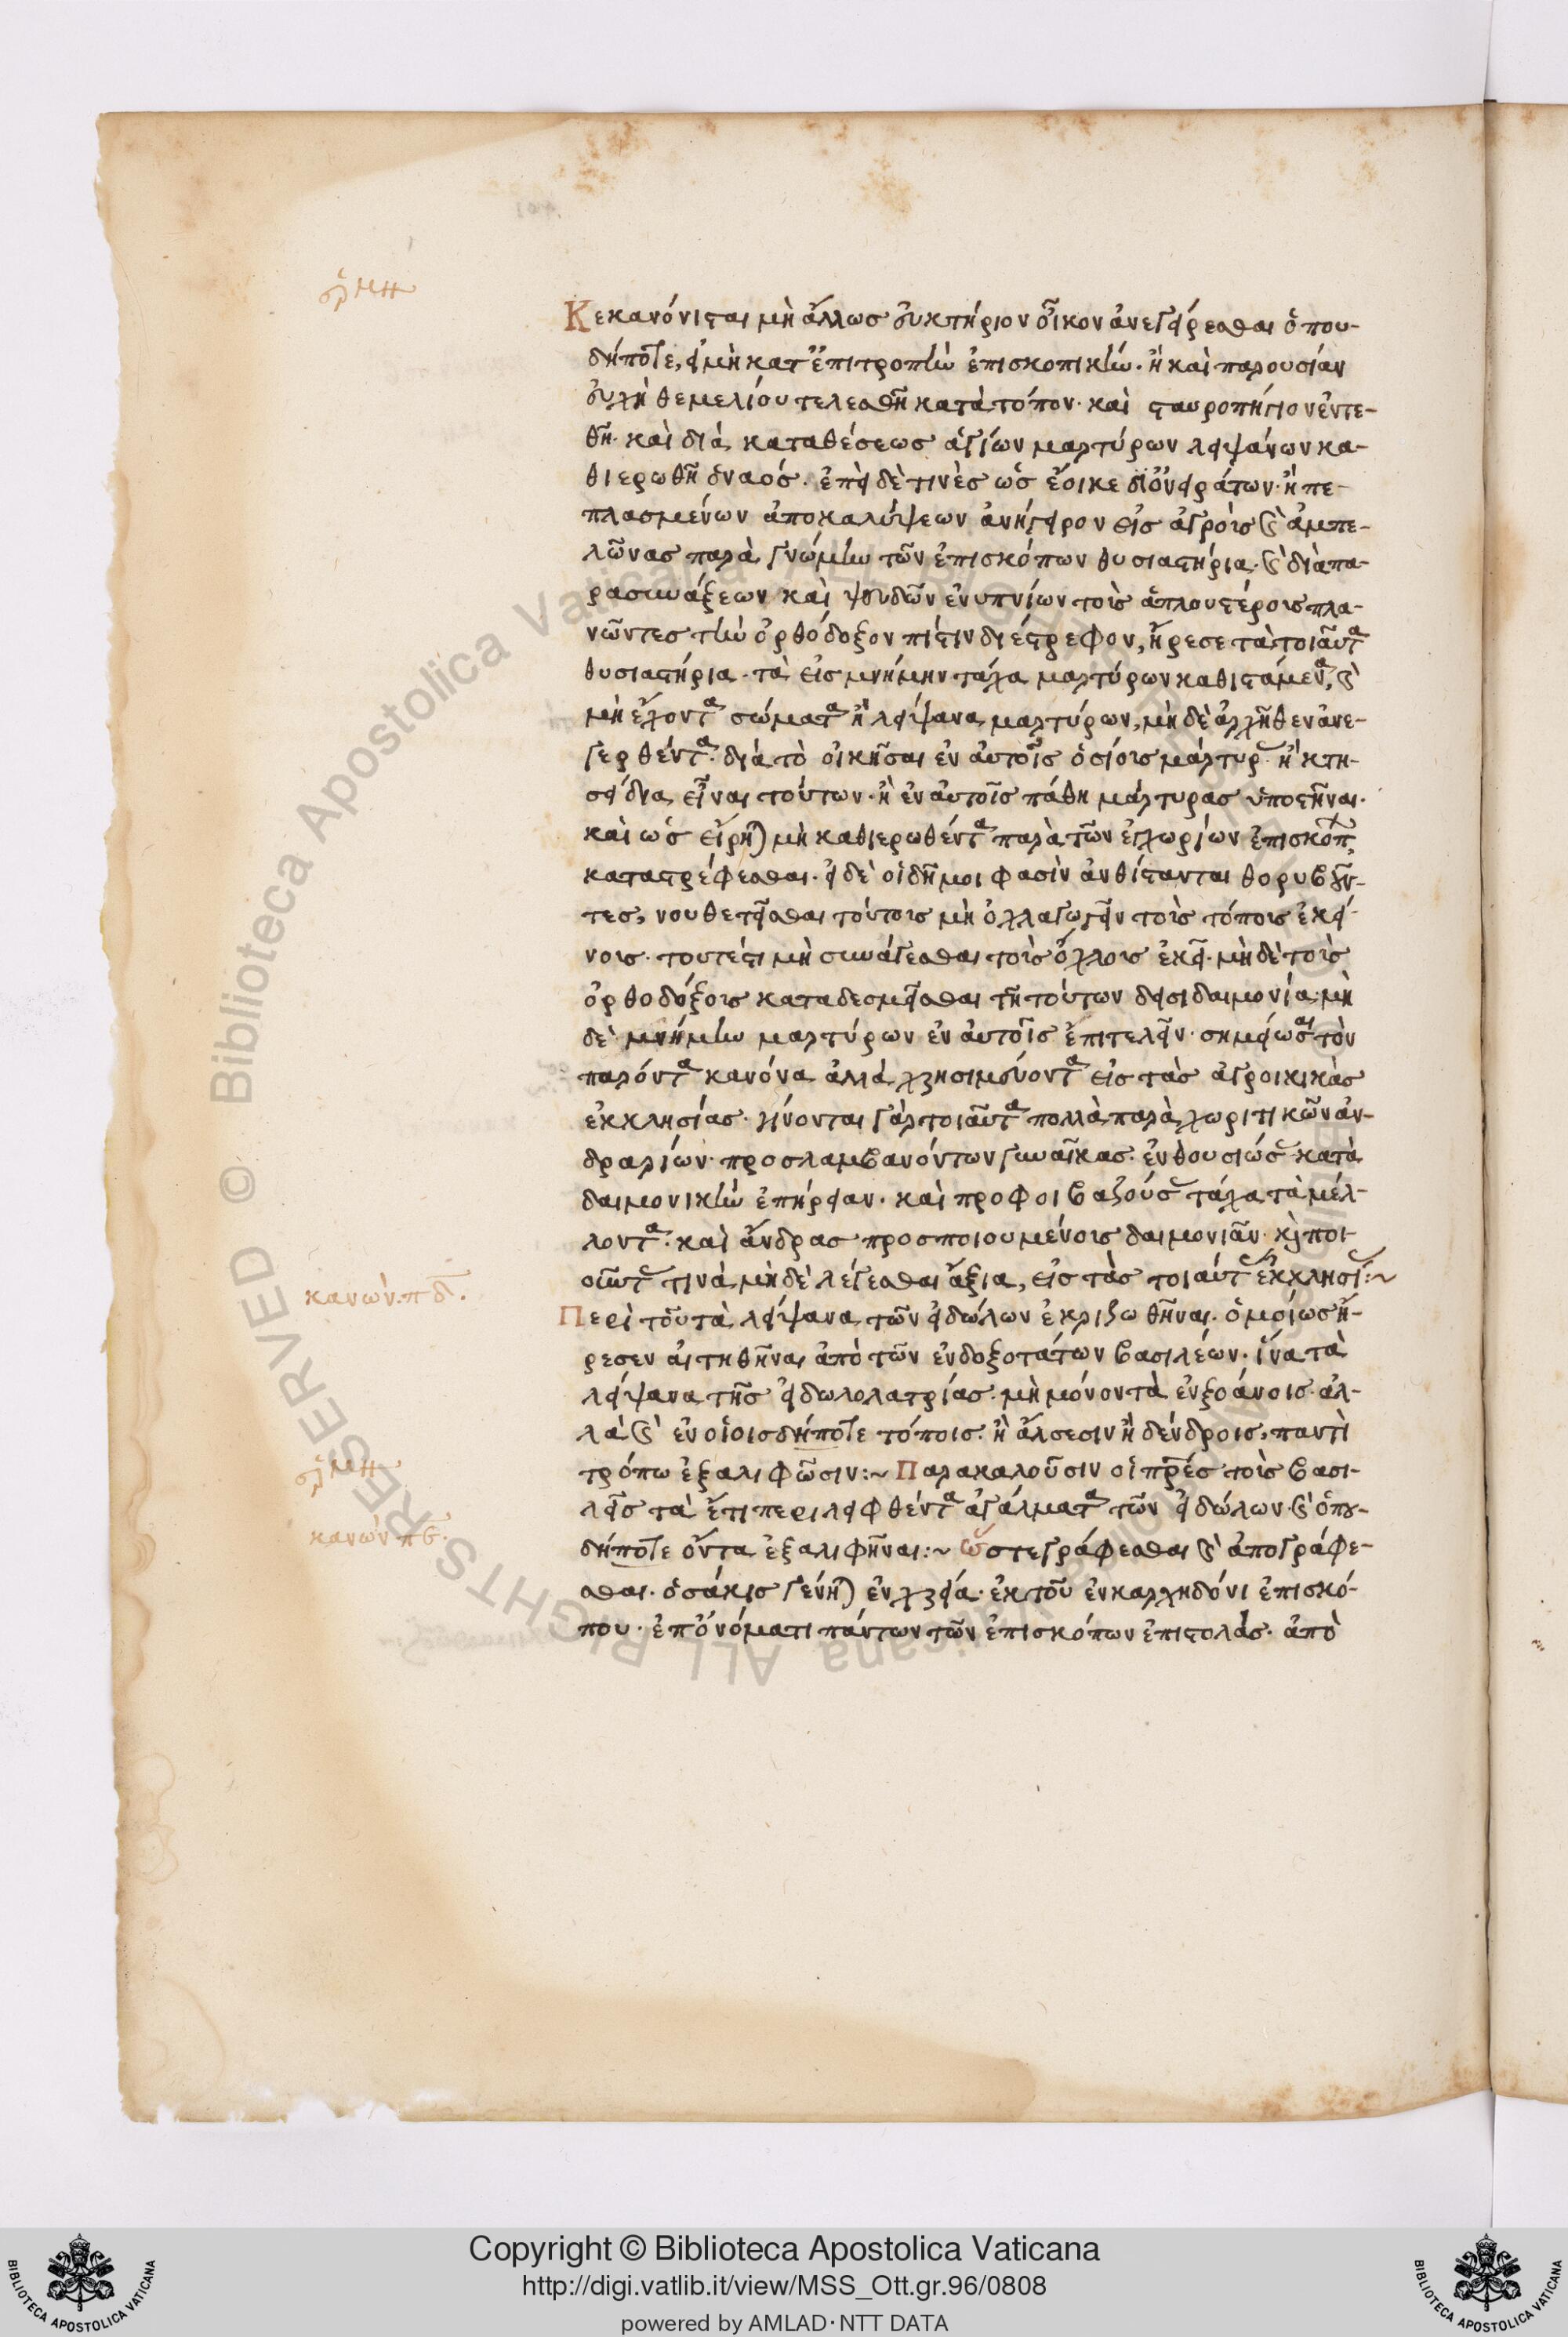 ἑρμη
Κεκανόνισται μὴ ἄλλως εὐκτήριον οἶκον ἀνεγείρεσθαι ὁπου-
δήποτε, εἰ μὴ κατ' ἐπιτροπὴν ἐπισκοπικὴν. ἢ καὶ παρουσίαν
εὐχὴ θεμελίου τελεσθῆ κατὰ τόπον· καὶ σταυροπήγιον ἐντε-
θῆ· καὶ διὰ καταθέσεως ἁγίων μαρτύρων λειψάνων κα-
θιερωθῆ ὁ ναός. ἐπεὶ δὲ τινὲς ὡς ἔοικε δι' ὀνειράτων· ἢ πε-
πλασμένων ἀποκαλύψεων ἀνήγειρον εἰς ἀγροῖς καὶ ἀμπε-
λῶνας παρὰ γνώμην τῶν ἐπισκόπων θυσιαστήρια· καὶ διὰ πα-
ρασυνάξεων καὶ ψευδῶν ἐνυπνίων τοὶς ἁπλουστέροις πλα-
νῶντες τὴν ὀρθόδοξον πίστιν διέστρεφον, ἤρεσε τὰ τοιαῦτα
θυσιαστήρια· τὰ εἰς μνήμην τάχα μαρτύρων καθιστάμενα, καὶ
μὴ ἔχοντα σώματα ἢ λείψανα μαρτύρων, μὴ δὲ ἀρχῆθεν ἀνε-
γερθέντα· διὰ τὸ οἰκῆσαι ἐν αὐτοῖς ὁσίοις μάρτυρ ἢ κτη-
σείδια εἶναι τούτων· ἢ ἐν αὐτοῖς πάθη μάρτυρας ὑποστῆναι·
καὶ ὡς εἴρηται μὴ καθιερωθέντα παρὰ τῶν ἐγχωρίων ἐπισκόπ
καταστρέφεσθαι· εἰ δὲ οἱ δῆμοι φασὶν ἀνθίστανται θορυβοῦν-
τες, νουθετεῖσθαι τούτοις μὴ ὀχλαγωγεῖν τοὶς τόποις ἐκεί-
νοις· τουτέστι μὴ συνάγεσθαι τοὶς ὄχλοις ἐκεῖ· μὴ δὲ τοὶς
ὀρθοδόξοις καταδεσμεῖσθαι τῆ τούτων δεισιδαιμονία· μὴ
δὲ μνήμην μαρτύρων ἐν αὐτοῖς ἐπιτελεῖν· σημείωσαι τὸν
παρόντα κανόνα ἀλλὰ χρησιμεύοντα εἰς τὰς ἀγροικικὰς
ἐκκλησίας· γίνονται γὰρ τοιαῦτα πολλὰ παρὰ χωριτικῶν ἀν-
δραρίων· προσλαμβανόντων γυναῖκας· ἐνθουσιώσ κατὰ
δαιμονικὴν ἐπήρειαν· καὶ προφοιβαζούσ τάχα τὰ μέλ-
λοντα· καὶ ἄνδρας προσποιουμένοις δαιμονιᾶν· καὶ ποι-
οῦντ τινὰ μὴ δὲ λέγεσθαι ἄξια, εἰς τὰς τοιαύτ ἐκκλησί:~
κανὼν. πδ.
Περὶ τοῦ τὰ λείψανα τῶν εἰδώλων ἐκριζωθῆναι. ὁμοίως ἤ-
ρεσεν αἰτηθῆναι ἀπὸ τῶν ἐνδοξοτάτων βασιλέων· ἵνα τὰ
λείψανα τῆς εἰδωλολατρίας· μὴ μόνον τὰ ἐν ξοάνοις· ἀλ-
λὰ καὶ ἐν οἵοις δήποτε τόποις· ἢ ἄλσεσιν ἢ δένδροις, παντὶ
ἑρμη
τρόπω ἐξαλιφῶσιν:~ Παρακαλοῦσιν οἱ πρες τοὶς βασι-
λεῖς τὰ ἔτι περιλειφθέντα ἀγάλματα τῶν εἰδώλων· καὶ ὁπου-
κανὼν πϛ.
δήποτε ὄντα ἐξαλιφῆναι:~ ὥστε γράφεσθαι καὶ ἀπογράφε-
σθαι· ὁσάκις γένηται ἐν χρεία· ἐκ τοῦ ἐν καλχηδόνι ἐπισκό-
που· ἐπ' ὀνόματι πάντων τῶν ἐπισκόπων ἐπιστολὰς· ἀπὸ
Biblioteca Apostolica Vaticana ALL RIGHTS RESERVED ©
Copyright © Biblioteca Apostolica Vaticana
http://digi.vatlib.it/view/MSS_Ott.gr.96/0808
powered by AMLAD·NTT DATA
BIBLIOTECA APOSTOLICA VATICANA
BIBLIOTECA APOSTOLICA VATICANA